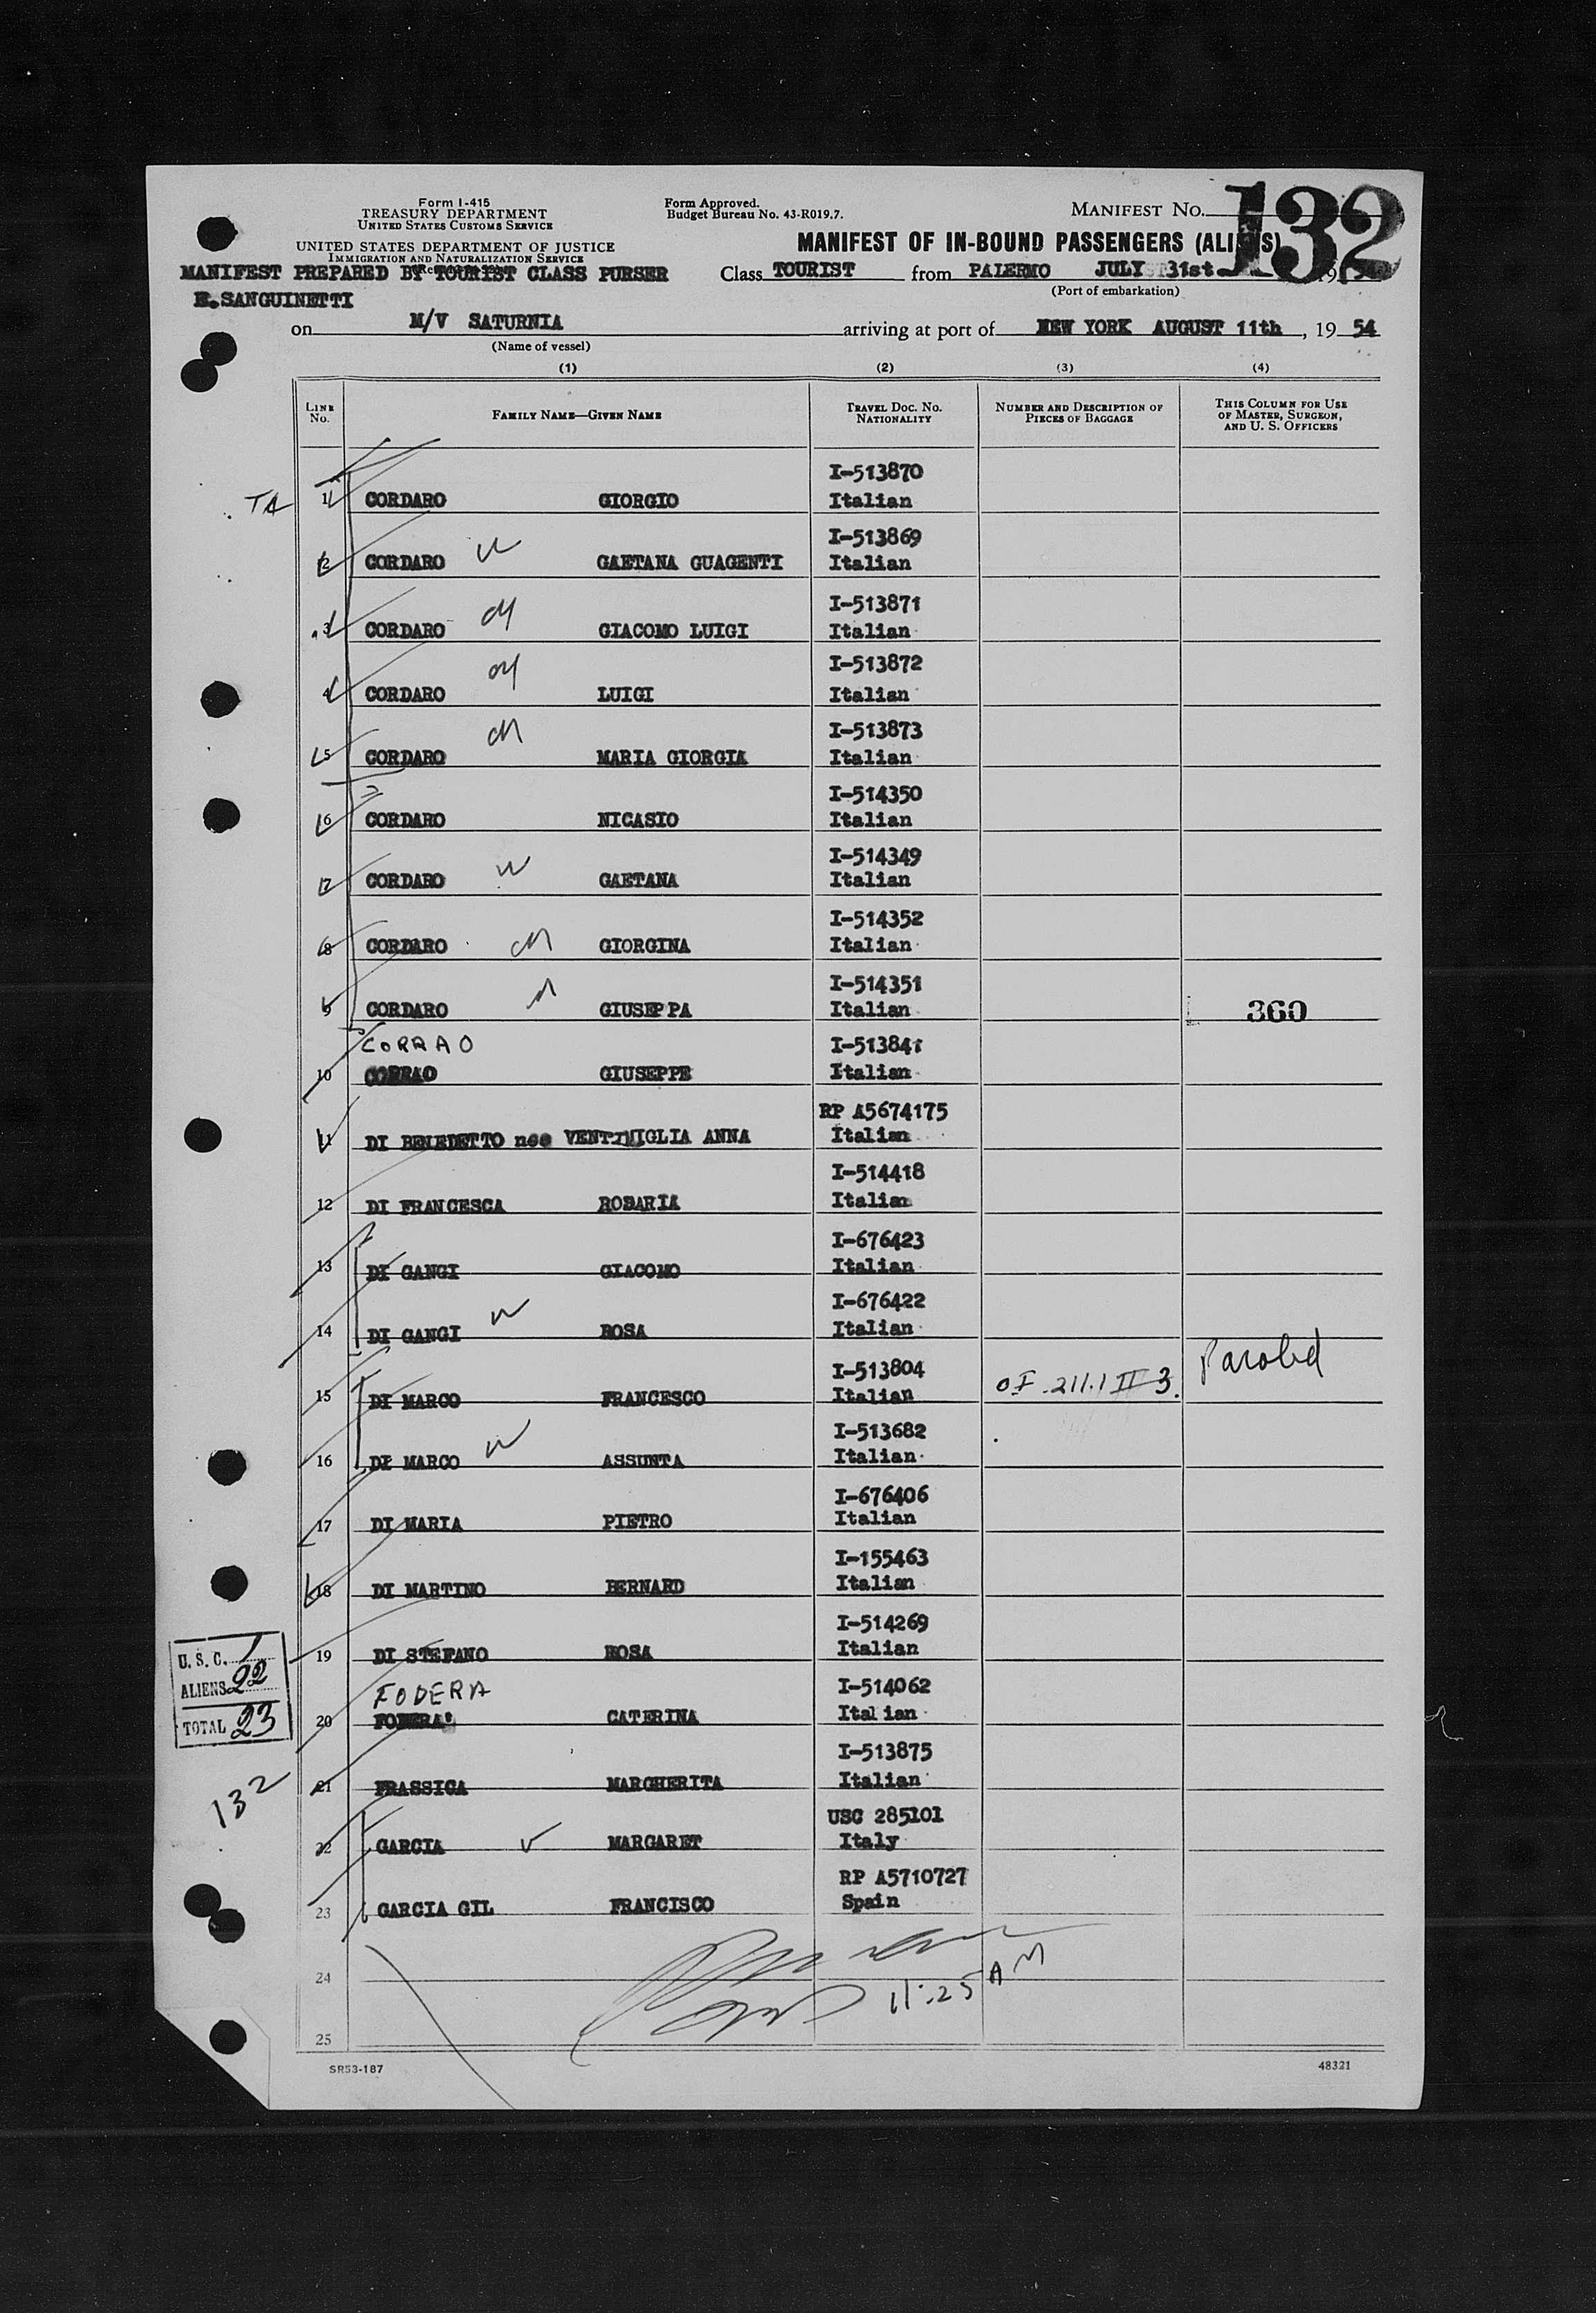 Form I-415
TREASURY DEPARTMENT
UNITED STATES CUSTOMS SERVICE
UNITED STATES DEPARTMENT OF JUSTICE
IMMIGRATION AND NATURALIZATION SERVICE
Form Approved.
Budget Bureau No. 43-R019.7.
MANIFEST NO. 132
MANIFEST OF IN-BOUND PASSENGERS (ALIENS)
MANIFEST PREPARED BY TOURIST CLASS PURSER
E. SANGUINETTI
Class TOURIST from PALERMO JULY 31st
(Port of embarkation)
on M/V SATURNIA arriving at port of NEW YORK AUGUST 11th, 19 54
(Name of vessel)
(1) (2) (3) (4)
LINE No. FAMILY NAME—GIVEN NAME TRAVEL DOC. NO. NATIONALITY NUMBER AND DESCRIPTION OF PIECES OF BAGGAGE THIS COLUMN FOR USE OF MASTER, SURGEON, AND U. S. OFFICERS
I-513870
TA 1 CORDARO GIORGIO Italian
I-513869
2 CORDARO W GAETANA GUAGENTI Italian
I-513871
3 CORDARO GIACOMO LUIGI Italian
I-513872
4 CORDARO LUIGI Italian
I-513873
5 CORDARO MARIA GIORGIA Italian
I-514350
6 CORDARO NICASIO Italian
I-514349
7 CORDARO W GAETANA Italian
I-514352
8 CORDARO GIORGINA Italian
I-514351
9 CORDARO GIUSEPPA Italian 360
CORRAO I-513841
10 CORRAO GIUSEPPE Italian
RP A5674175
11 DI BENEDETTO nee VENTIMIGLIA ANNA Italian
I-514418
12 DI FRANCESCA ROSARIA Italian
I-676423
13 DI GANGI GIACOMO Italian
I-676422
14 DI GANGI W ROSA Italian
I-513804 Paroled
15 DI MARCO FRANCESCO Italian OF 211.1 II 3.
I-513682
16 DI MARCO W ASSUNTA Italian
I-676406
17 DI MARIA PIETRO Italian
I-155463
18 DI MARTINO BERNARD Italian
I-514269
19 DI STEFANO ROSA Italian
FODERA I-514062
20 FODERA' CATERINA Italian
I-513875
21 FRASSICA MARGHERITA Italian
USC 285101
22 GARCIA MARGARET Italy
RP A5710727
23 GARCIA GIL FRANCISCO Spain
24
11:25 AM
25
U. S. C. 1
ALIENS 22
TOTAL 23
132
SR53-187
48321